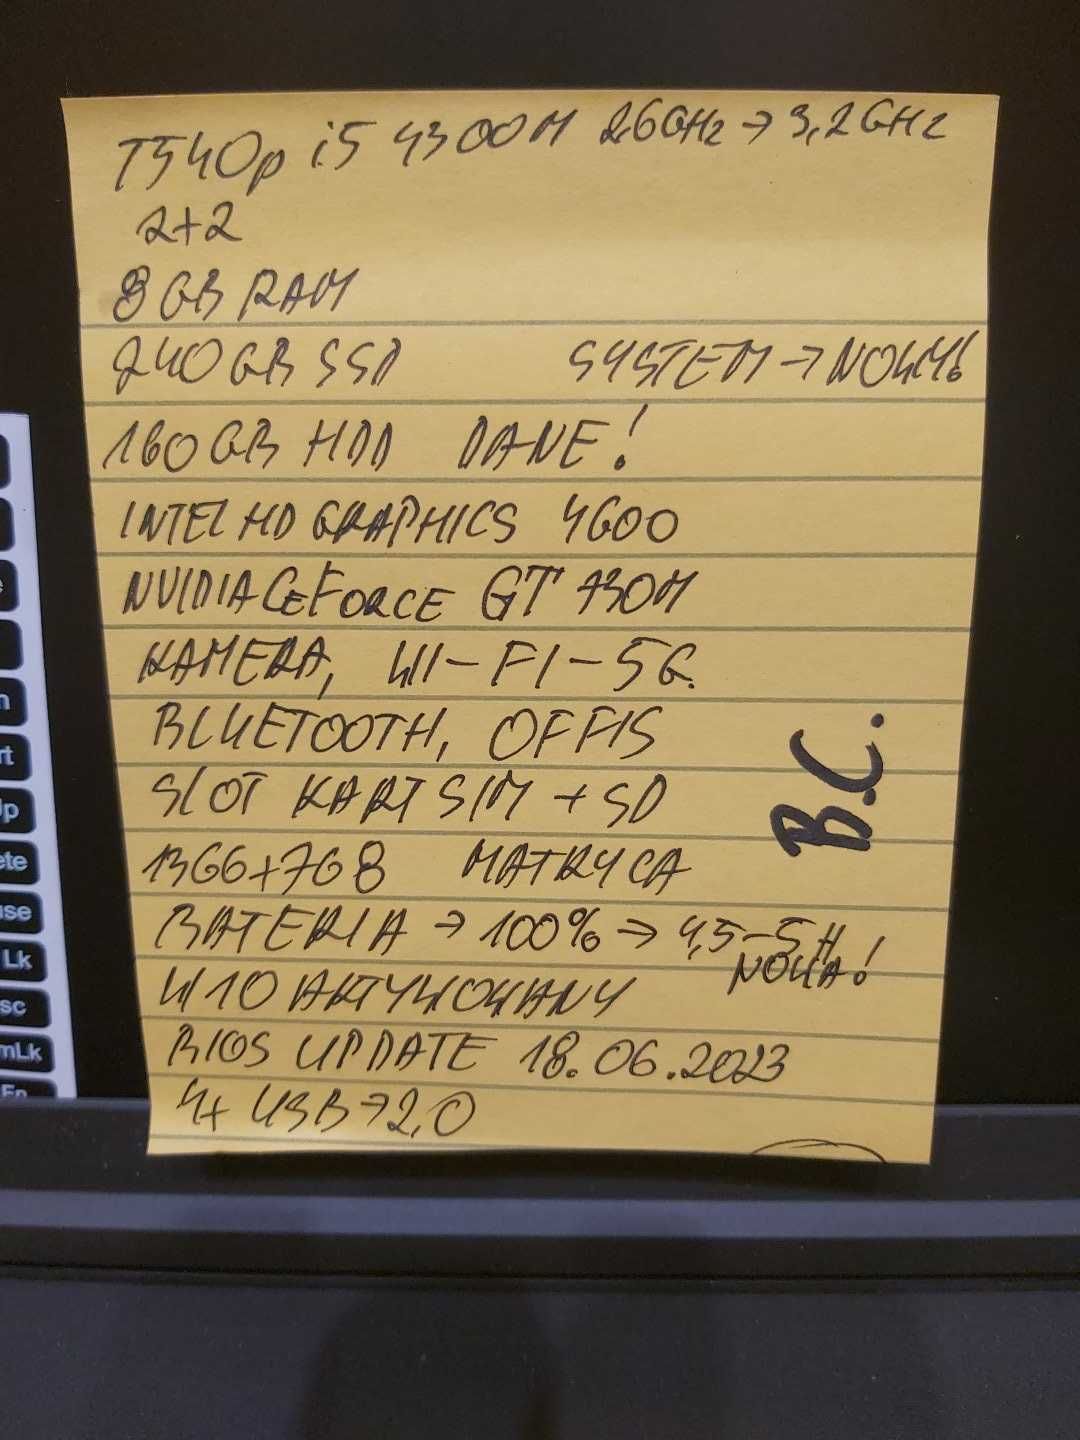 T540p i5 4300M 2,6GHz → 3,2GHz
2+2
8 GB RAM
240 GB SSD SYSTEM → NOWY!
160 GB HDD DANE!
INTEL HD GRAPHICS 4600
NVIDIA GEFORCE GT 730M
KAMERA, WI-FI-5G.
BLUETOOTH, OFFIS
SLOT KART SIM + SD
1366x768 MATRYCA
BATERIA → 100% → 4,5-5H
NOWA!
W10 AKTYWOWANY
BIOS UPDATE 18.06.2023
4x USB → 2,0
B.C.
Lk
mLk
Fn